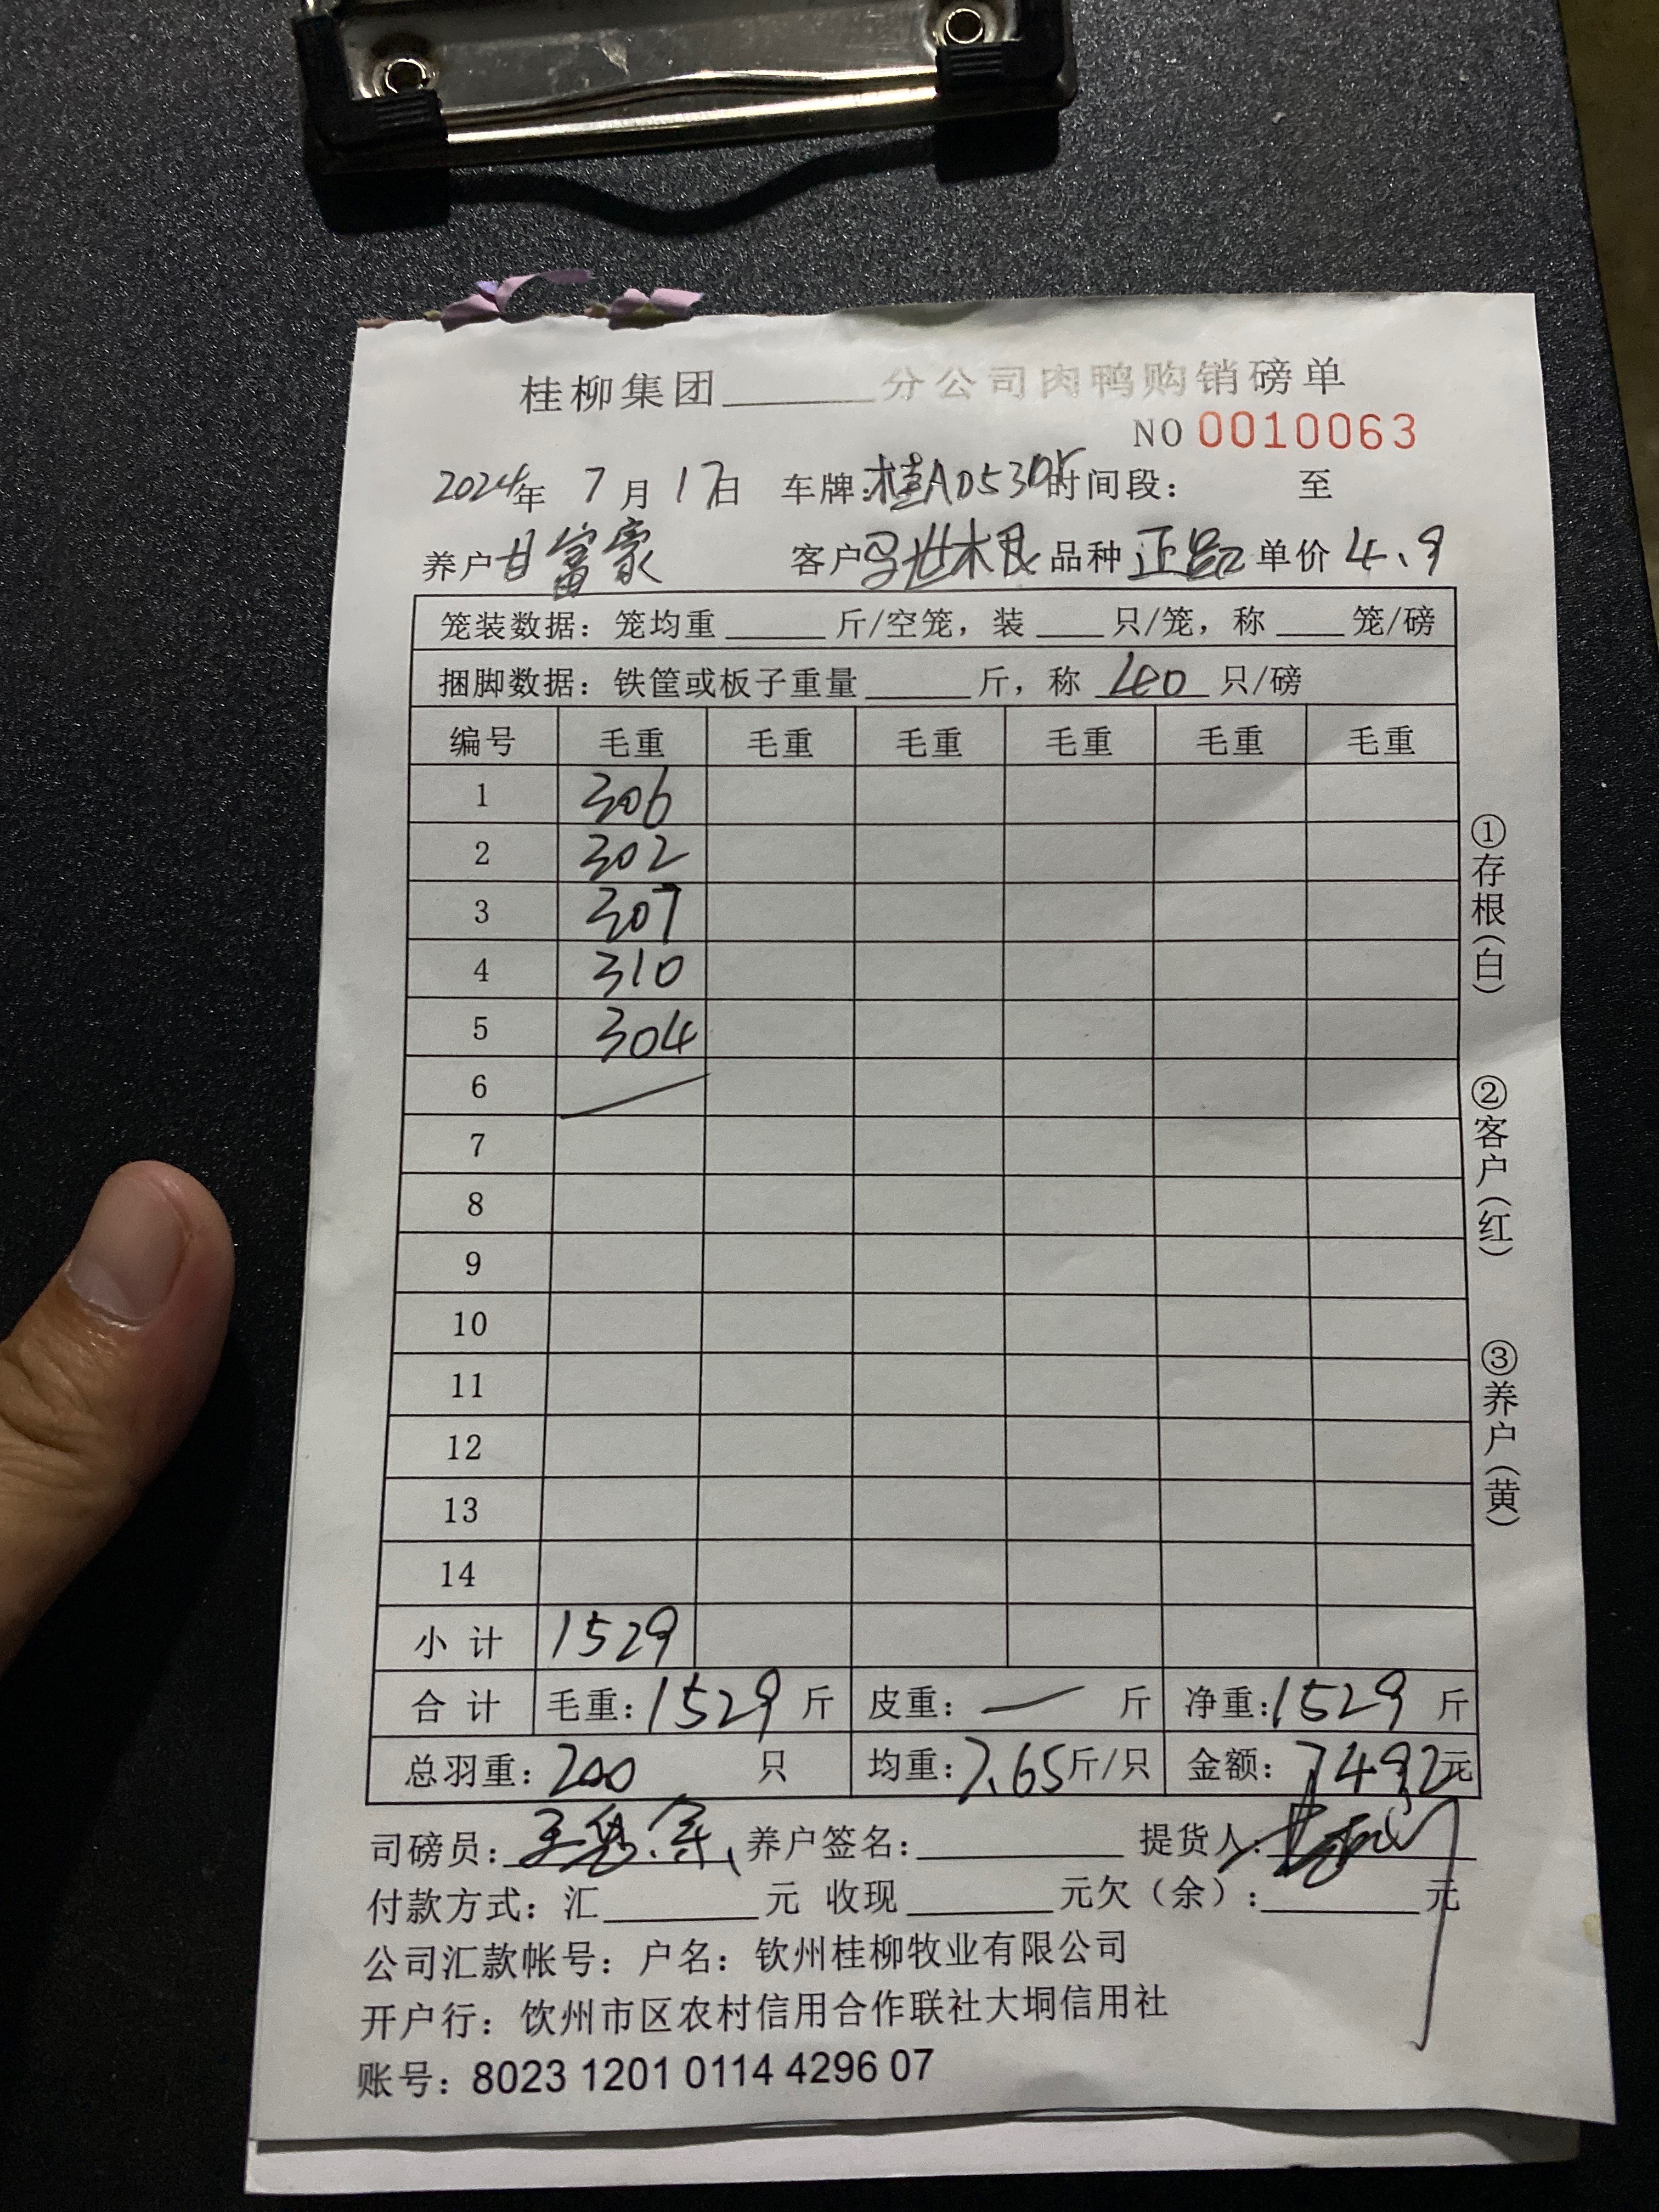 桂柳集团______分公司肉鸭购销磅单
NO 0010063
2024年 7月17日 车牌:桂AD530 时间段: 至
养户 甘富豪 客户 品种 正品 单价 4.9
笼装数据: 笼均重______斤/空笼, 装____只/笼, 称____笼/磅
捆脚数据: 铁筐或板子重量______斤, 称 40 只/磅
编号 毛重 毛重 毛重 毛重 毛重 毛重
1 306
2 302
3 307
4 310
5 304
6
7
8
9
10
11
12
13
14
小计 1529
合计 毛重: 1529 斤 皮重: — 斤 净重: 1529 斤
总羽重: 200 只 均重: 7.65 斤/只 金额: 7492 元
司磅员: 养户签名: 提货人:
付款方式: 汇______元 收现______元欠（余）:______元
公司汇款帐号: 户名: 钦州桂柳牧业有限公司
开户行: 钦州市区农村信用合作联社大垌信用社
账号: 8023 1201 0114 4296 07
①存根(白)
②客户(红)
③养户(黄)